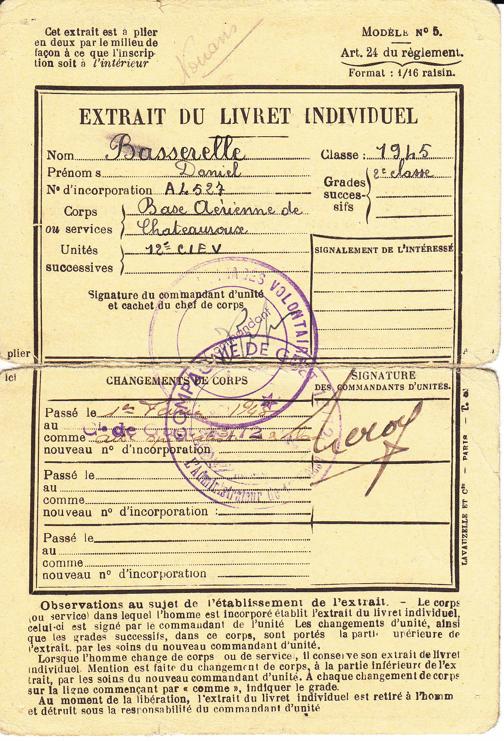 Cet extrait est à plier
en deux par le milieu de
façon à ce que l'inscrip
tion soit à l'intérieur
Nouans
MODÈLE Nº 5.
Art. 24 du règlement.
Format : 1/16 raisin.
EXTRAIT DU LIVRET INDIVIDUEL
Nom Basserelle
Prénoms Daniel
Nº d'incorporation A4527
Corps Base Aérienne de
ou services Chateauroux
Unités 12e C I E V
successives
Classe : 1945
Grades 2e classe
succes-
sifs
SIGNALEMENT DE L'INTÉRESSÉ
Signature du commandant d'unité
et cachet du chef de corps
VOLONTAIR
COMPAGNIE DE
L'Administrateur
plier
ici
CHANGEMENTS DE CORPS
SIGNATURE
DES COMMANDANTS D'UNITÉS.
Passé le 1er
au
comme
nouveau nº d'incorporation
Passé le
au
comme
nouveau nº d'incorporation :
Passé le
au
comme
nouveau nº d'incorporation
LAVAUZELLE ET Cie — PARIS
Observations au sujet de l'établissement de l'extrait. - Le corps
(ou service) dans lequel l'homme est incorporé établit l'extrait du livret individuel,
celui-ci est signé par le commandant de l'unité Les changements d'unité, ainsi
que les grades successifs, dans ce corps, sont portés à la partie supérieure de
l'extrait, par les soins du nouveau commandant d'unité.
Lorsque l'homme change de corps ou de service, il conserve son extrait de livret
individuel. Mention est faite du changement de corps, à la partie inférieure de l'ex
trait, par les soins du nouveau commandant d'unité. A chaque changement de corps
sur la ligne commençant par « comme », indiquer le grade.
Au moment de la libération, l'extrait du livret individuel est retiré à l'homm
et détruit sous la responsabilité du commandant d'unité